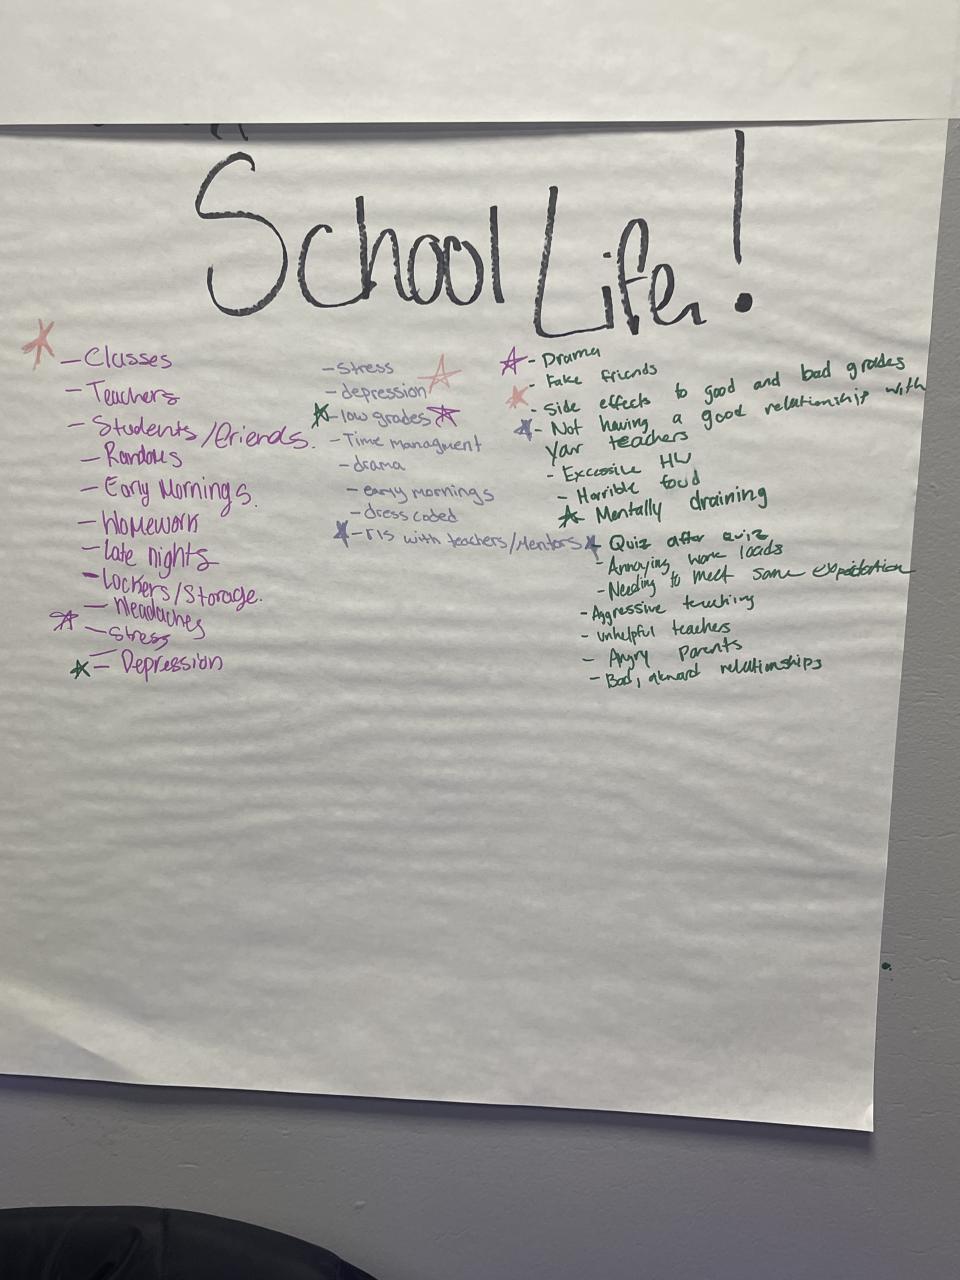 School Life!
- Classes
- Teachers
- Students/friends.
- Early Mornings.
- Homework
- late nights
- Lockers/Storage.
- Headaches
- Stress
- Depression
- stress
- depression
- low grades
- Time managment
- drama
- early mornings
- dress coded
- r1s with teachers/Mentors
- Drama
- Fake friends
- Side effects to good and bad grades
- Not having a good relationship with
your teachers
- Excessive HW
- Horrible food
Mentally draining
Quiz after quiz
- Annoying work loads
- Needing to meet some expectation
- Aggressive teaching
- unhelpful teachers
- Angry Parents
- Bad, akward relationships